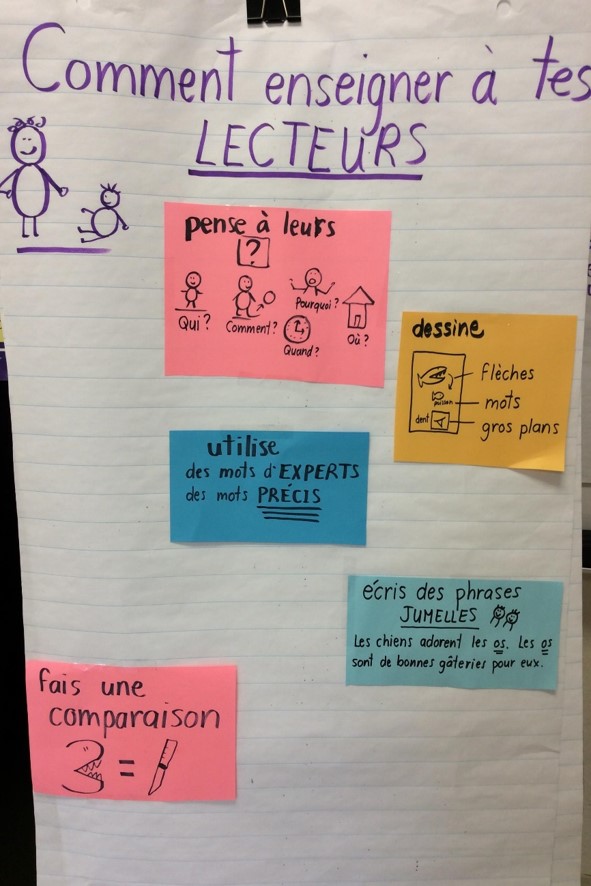 Comment enseigner à tes
LECTEURS
pense à leurs
?
Qui?
Comment?
Pourquoi?
Quand?
Où?
dessine
flèches
poisson
mots
dent
gros plans
utilise
des mots d'EXPERTS
des mots PRÉCIS
écris des phrases
JUMELLES
Les chiens adorent les os. Les os
sont de bonnes gâteries pour eux.
fais une
comparaison
=